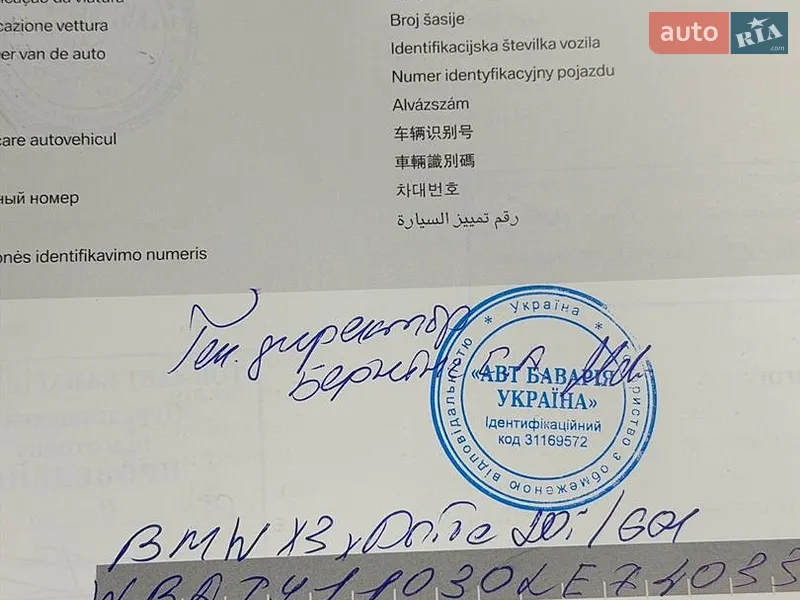 cazione vettura
er van de auto
care autovehicul
ный номер
onės identifikavimo numeris
Broj šasije
Identifikacijska številka vozila
Numer identyfikacyjny pojazdu
Alvázszám
车辆识别号
車輛識別碼
차대번호
رقم تمييز السيارة
auto RIA .com
Ген. директор
Україна
Товариство з обмеженою відповідальністю
«АВТ БАВАРІЯ
УКРАЇНА»
Ідентифікаційний
код 31169572
BMW X3 xDrive 20i / G01